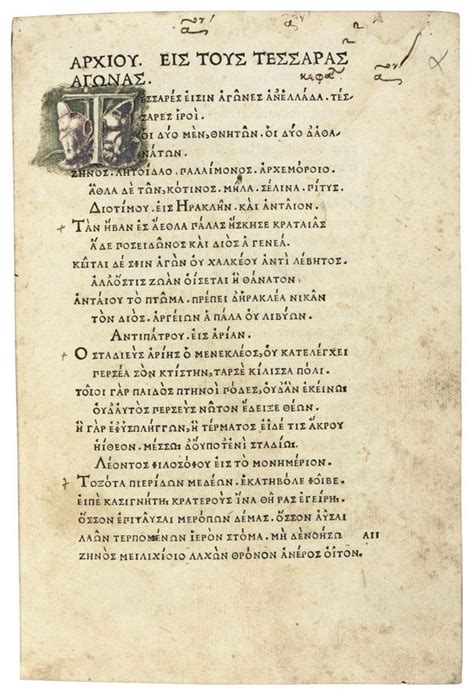 ΑΡΧΙΟΥ. ΕΙΣ ΤΟΥΣ ΤΕΣΣΑΡΑΣ
ΑΓΩΝΑΣ.
ΤΕΣΣΑΡΕΣ ΕΙΣΙΝ ΑΓΩΝΕΣ ΑΝΕΛΛΑΔΑ. ΤΕΣ
ΣΑΡΕΣ ΙΡΟΙ.
ΟΙ ΔΥΟ ΜΕΝ, ΘΝΗΤΩΝ. ΟΙ ΔΥΟ ΔΑΘΑ
ΝΑΤΩΝ.
ΖΗΝΟΣ. ΛΗΤΟΙΔΑΟ. ΠΑΛΑΙΜΟΝΟΣ. ΑΡΧΕΜΟΡΟΙΟ.
ΑΘΛΑ ΔΕ ΤΩΝ, ΚΟΤΙΝΟΣ. ΜΗΛΑ. ΣΕΛΙΝΑ. ΠΙΤΥΣ.
ΔΙΟΤΙΜΟΥ. ΕΙΣ ΗΡΑΚΛΗΝ. ΚΑΙ ΑΝΤΑΙΟΝ.
ΤΑΝ ΗΒΑΝ ΕΣ ΑΕΘΛΑ ΠΑΛΑΣ ΗΣΚΗΣΕ ΚΡΑΤΑΙΑΣ
ΑΔΕ ΠΟΣΕΙΔΩΝΟΣ ΚΑΙ ΔΙΟΣ Α ΓΕΝΕΑ.
ΚΕΙΤΑΙ ΔΕ ΣΦΙΝ ΑΓΩΝ ΟΥ ΧΑΛΚΕΟΥ ΑΝΤΙ ΛΕΒΗΤΟΣ.
ΑΛΛΟΣΤΙΣ ΖΩΑΝ ΟΙΣΕΤΑΙ Η ΘΑΝΑΤΟΝ.
ΑΝΤΑΙΟΥ ΤΟ ΠΤΩΜΑ. ΠΡΕΠΕΙ ΔΗΡΑΚΛΕΑ ΝΙΚΑΝ
ΤΟΝ ΔΙΟΣ. ΑΡΓΕΙΩΝ Α ΠΑΛΑ ΟΥ ΛΙΒΥΩΝ.
ΑΝΤΙΠΑΤΡΟΥ. ΕΙΣ ΑΡΙΑΝ.
Ο ΣΤΑΔΙΕΥΣ ΑΡΙΗΣ Ο ΜΕΝΕΚΛΕΟΣ, ΟΥ ΚΑΤΕΛΕΓΧΕΙ
ΠΕΡΣΕΑ ΣΟΝ ΚΤΙΣΤΗΝ, ΤΑΡΣΕ ΚΙΛΙΣΣΑ ΠΟΛΙ.
ΤΟΙΟΙ ΓΑΡ ΠΑΙΔΟΣ ΠΤΗΝΟΙ ΠΟΔΕΣ, ΟΥΔΑΝ ΕΚΕΙΝΩ
ΟΥΔΑΥΤΟΣ ΠΕΡΣΕΥΣ ΝΩΤΟΝ ΕΔΕΙΞΕ ΘΕΩΝ.
Η ΓΑΡ ΕΦΥΣΠΛΗΓΓΩΝ, Η ΤΕΡΜΑΤΟΣ ΕΙΔΕ ΤΙΣ ΑΚΡΟΥ
ΗΙΘΕΟΝ. ΜΕΣΣΩ ΔΟΥΠΟΤΕΝΙ ΣΤΑΔΙΩ.
ΛΕΟΝΤΟΣ ΦΙΛΟΣΟΦΟΥ ΕΙΣ ΤΟ ΜΟΝΗΜΕΡΙΟΝ.
ΤΟΞΟΤΑ ΠΙΕΡΙΔΩΝ ΜΕΔΕΩΝ. ΕΚΑΤΗΒΟΛΕ ΦΟΙΒΕ.
ΕΙΠΕ ΚΑΣΙΓΝΗΤΗ, ΚΡΑΤΕΡΟΥΣ ΙΝΑ ΘΗΡΑΣ ΕΓΕΙΡΗ.
ΟΣΣΟΝ ΕΠΙΨΑΥΣΑΙ ΜΕΡΟΠΩΝ ΔΕΜΑΣ. ΟΣΣΟΝ ΑΥΣΑΙ
ΛΑΩΝ ΤΕΡΠΟΜΕΝΩΝ ΙΕΡΟΝ ΣΤΟΜΑ. ΜΗ ΔΕΝΟΗΣΩ ΑΙΙ
ΖΗΝΟΣ ΜΕΙΛΙΧΙΟΙΟ ΛΑΧΩΝ ΘΡΟΝΟΝ ΑΝΕΡΟΣ ΟΙΤΟΝ.